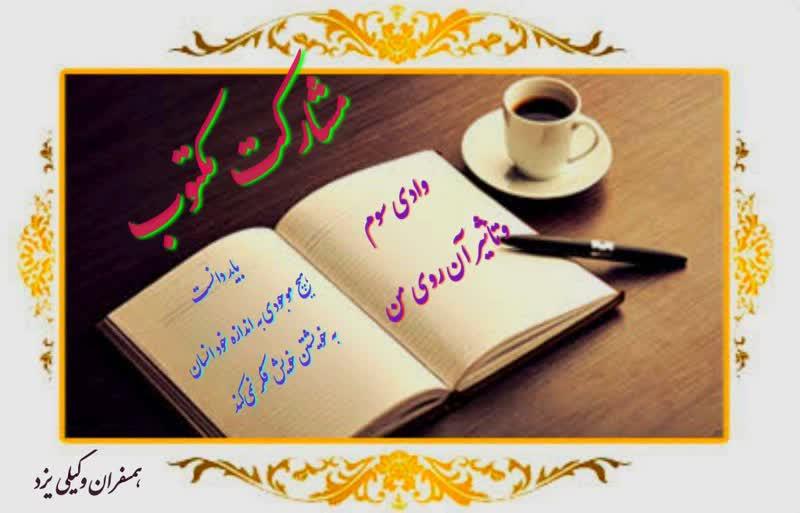 مشارکت مکتوب
وادی سوم
و تأثیر آن روی من
باید دانست
هیچ موجودی به اندازه خود انسان
به خویشتن خویش فکر نمی‌کند
همسفران وکیلی یزد